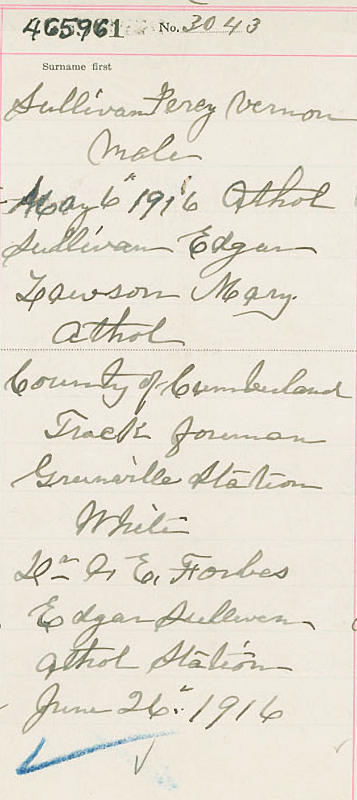 465961 No. 3043
Surname first
Sullivan Percy Vernon
Male
May 6" 1916 Athol
Sullivan Edgar
Lawson Mary
Athol
County of Cumberland
Track foreman
Greenville Station
White
Dr E. Forbes
Edgar Sullivan
Athol Station
June 26" 1916